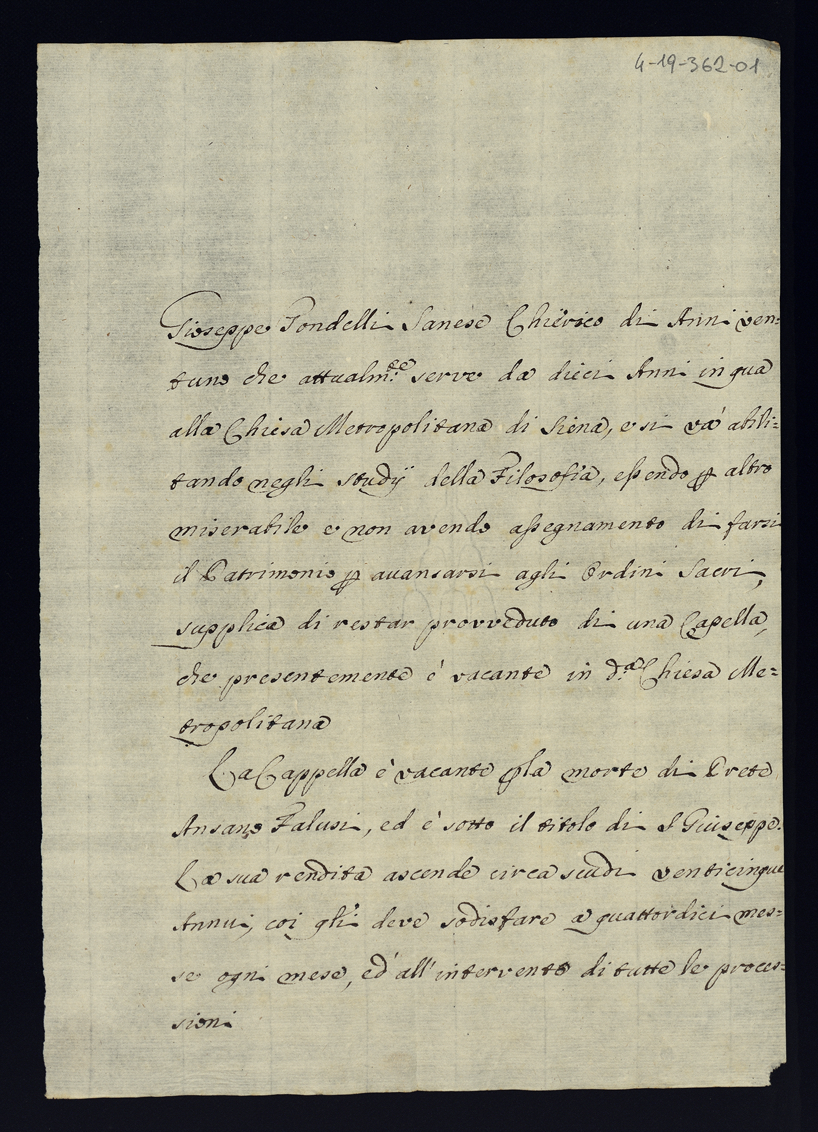 4-19-362-01
Gioseppe Fondelli Sanese Chierico di Anni ven=
tuno che attualm:te serve da dieci Anni in qua
alla Chiesa Metropolitana di Siena, e si và abili=
tando negli studÿ della Filosofia, essendo p altro
miserabile e non avendo assegnamento di farsi
il Patrimonio p avansarsi agli Ordini Sacri,
supplica di restar provveduto di una Capella,
che presentemente è vacante in d:a Chiesa Me=
tropolitana
La Cappella è vacante p la morte di Prete
Ansano Falusi, ed è sotto il titolo di S Giuseppe.
La sua rendita ascende circa scudi venticinque
Annui, coi qli deve sodisfare a quattordici mes=
se ogni mese, ed all'intervento di tutte le proces=
sioni